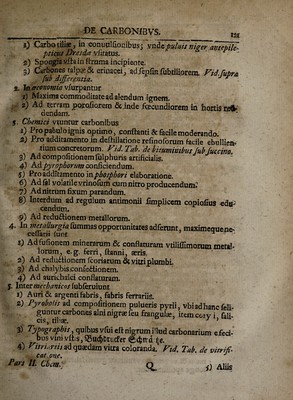 DE CARBONIBVS.
1) Carbo tiliæ, in conuulsionibus; vnde puluis niger antepile-
pticus Dresdæ visitatus.
2) Spongia vsta in struma incipiente.
3) Carbones talpæ & erinacei, ad sepsin subtiliorem. Vid. supra
sub differentia.
2. In œconomia vsurpantur
1) Maxima commoditate ad alendum ignem.
2) Ad terram porosiorem & inde fœcundiorem in hortis red-
dendam.
3. Chemici vtuntur carbonibus
1) Pro pabulo ignis optimo, constanti & facile moderando.
2) Pro additamento in destillatione resinosorum facile ebullien-
tium concretorum. Vid. Tab. de bituminibus sub succino.
3) Ad compositionem sulphuris artificialis.
4) Ad pyrophorum conficiendum.
5) Pro additamento in phosphori elaboratione.
6) Ad sal volatile vrinosum cum nitro producendum.
7) Ad nitrum fixum parandum.
8) Interdum ad regulum antimonii simplicem copiosius edu-
cendum.
9) Ad reductionem metallorum.
4. In metallurgia summas opportunitates adferunt, maximeque ne-
cessarii sunt
1) Ad fusionem minerarum & constaturam vtilissimorum metal-
lorum, e. g. ferri, stanni, æris.
2) Ad reductionem scoriarum & vitri plumbi.
3) Ad chalybis confectionem.
4) Ad aurichalci constaturam.
5. Inter mechanicos subseruiunt
1) Auri & argenti fabris, fabris ferrariis.
2) Pyrobolis ad compositionem pulueris pyrii, vbi ad hanc seli-
guntur carbones alni nigræ seu frangulæ, item coryli, sali-
cis, tiliæ.
3) Typographis, quibus vsui est nigrum illud carbonarium e fæci-
bus vini vsti, Buchdrucker Schwärtze.
4) Vitrariis ad quædam vitra coloranda. Vid. Tab. de vitrifi-
catione.
Pars II. Chem. Q 5) Aliis